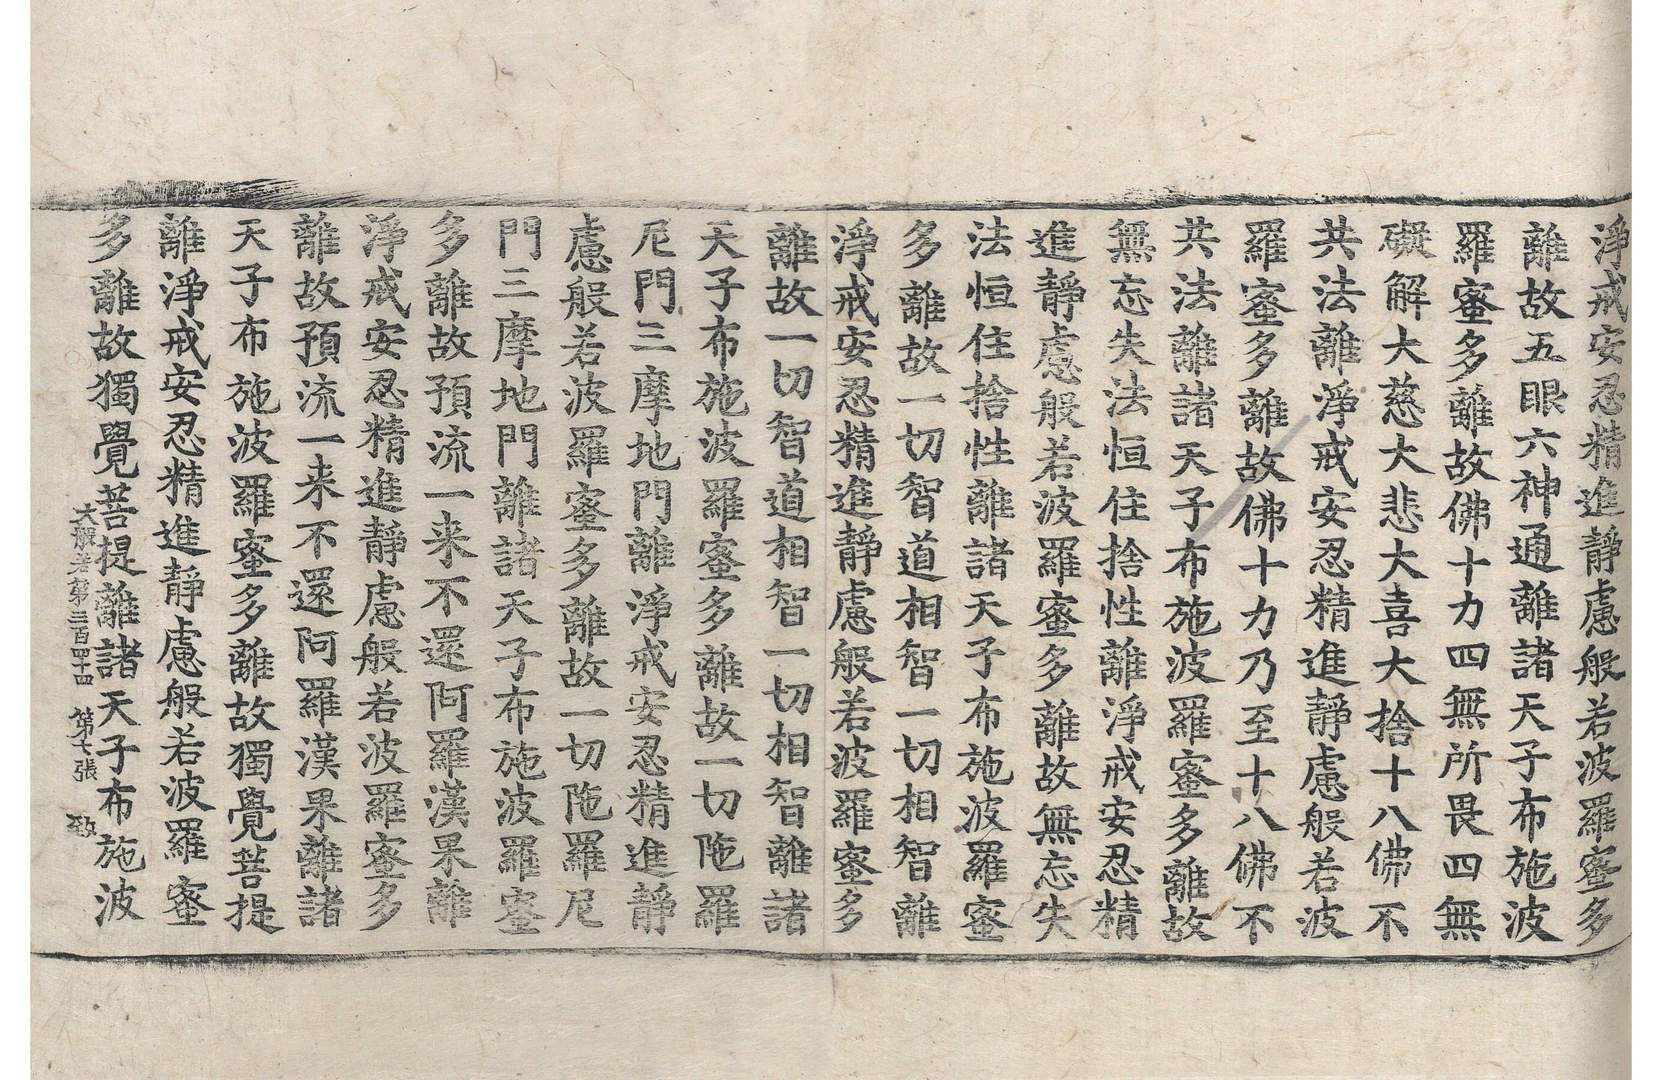 淨戒安忍精進靜慮般若波羅蜜多
離故五眼六神通離諸天子布施波
羅蜜多離故佛十力四無所畏四無
礙解大慈大悲大喜大捨十八佛不
共法離淨戒安忍精進靜慮般若波
羅蜜多離故佛十力乃至十八佛不
共法離諸天子布施波羅蜜多離故
無忘失法恒住捨性離淨戒安忍精
進靜慮般若波羅蜜多離故無忘失
法恒住捨性離諸天子布施波羅蜜
多離故一切智道相智一切相智離
淨戒安忍精進靜慮般若波羅蜜多
離故一切智道相智一切相智離諸
天子布施波羅蜜多離故一切陁羅
尼門三摩地門離淨戒安忍精進靜
慮般若波羅蜜多離故一切陁羅尼
門三摩地門離諸天子布施波羅蜜
多離故預流一来不還阿羅漢果離
淨戒安忍精進靜慮般若波羅蜜多
離故預流一来不還阿羅漢果離諸
天子布施波羅蜜多離故獨覺菩提
離淨戒安忍精進靜慮般若波羅蜜
多離故獨覺菩提離諸天子布施波
大般若第三百四十四 第七張 致